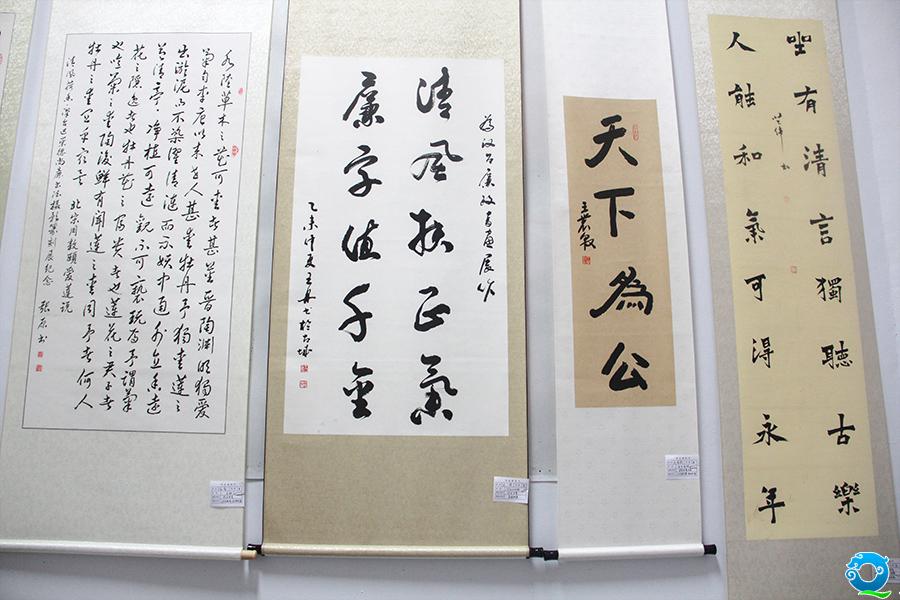 水陸草木之花可愛者甚蕃晋陶渊明獨愛
菊自李唐以来世人甚愛牡丹予獨愛蓮之
出淤泥而不染濯清漣而不妖中通外直香遠
益清亭亭淨植可遠觀不可褻玩焉予謂菊
花之隱逸者也牡丹花之富贵者也蓮花之君子者
也噫菊之愛陶後鮮有聞蓮之愛同予者何人
牡丹之愛宜乎眾矣 北宋周敦頤愛蓮説
為汶上廉政書畫展作
清風扶正氣
廉字值千金
天下為公
坐有清言獨聽古樂
人能和氣可得永年